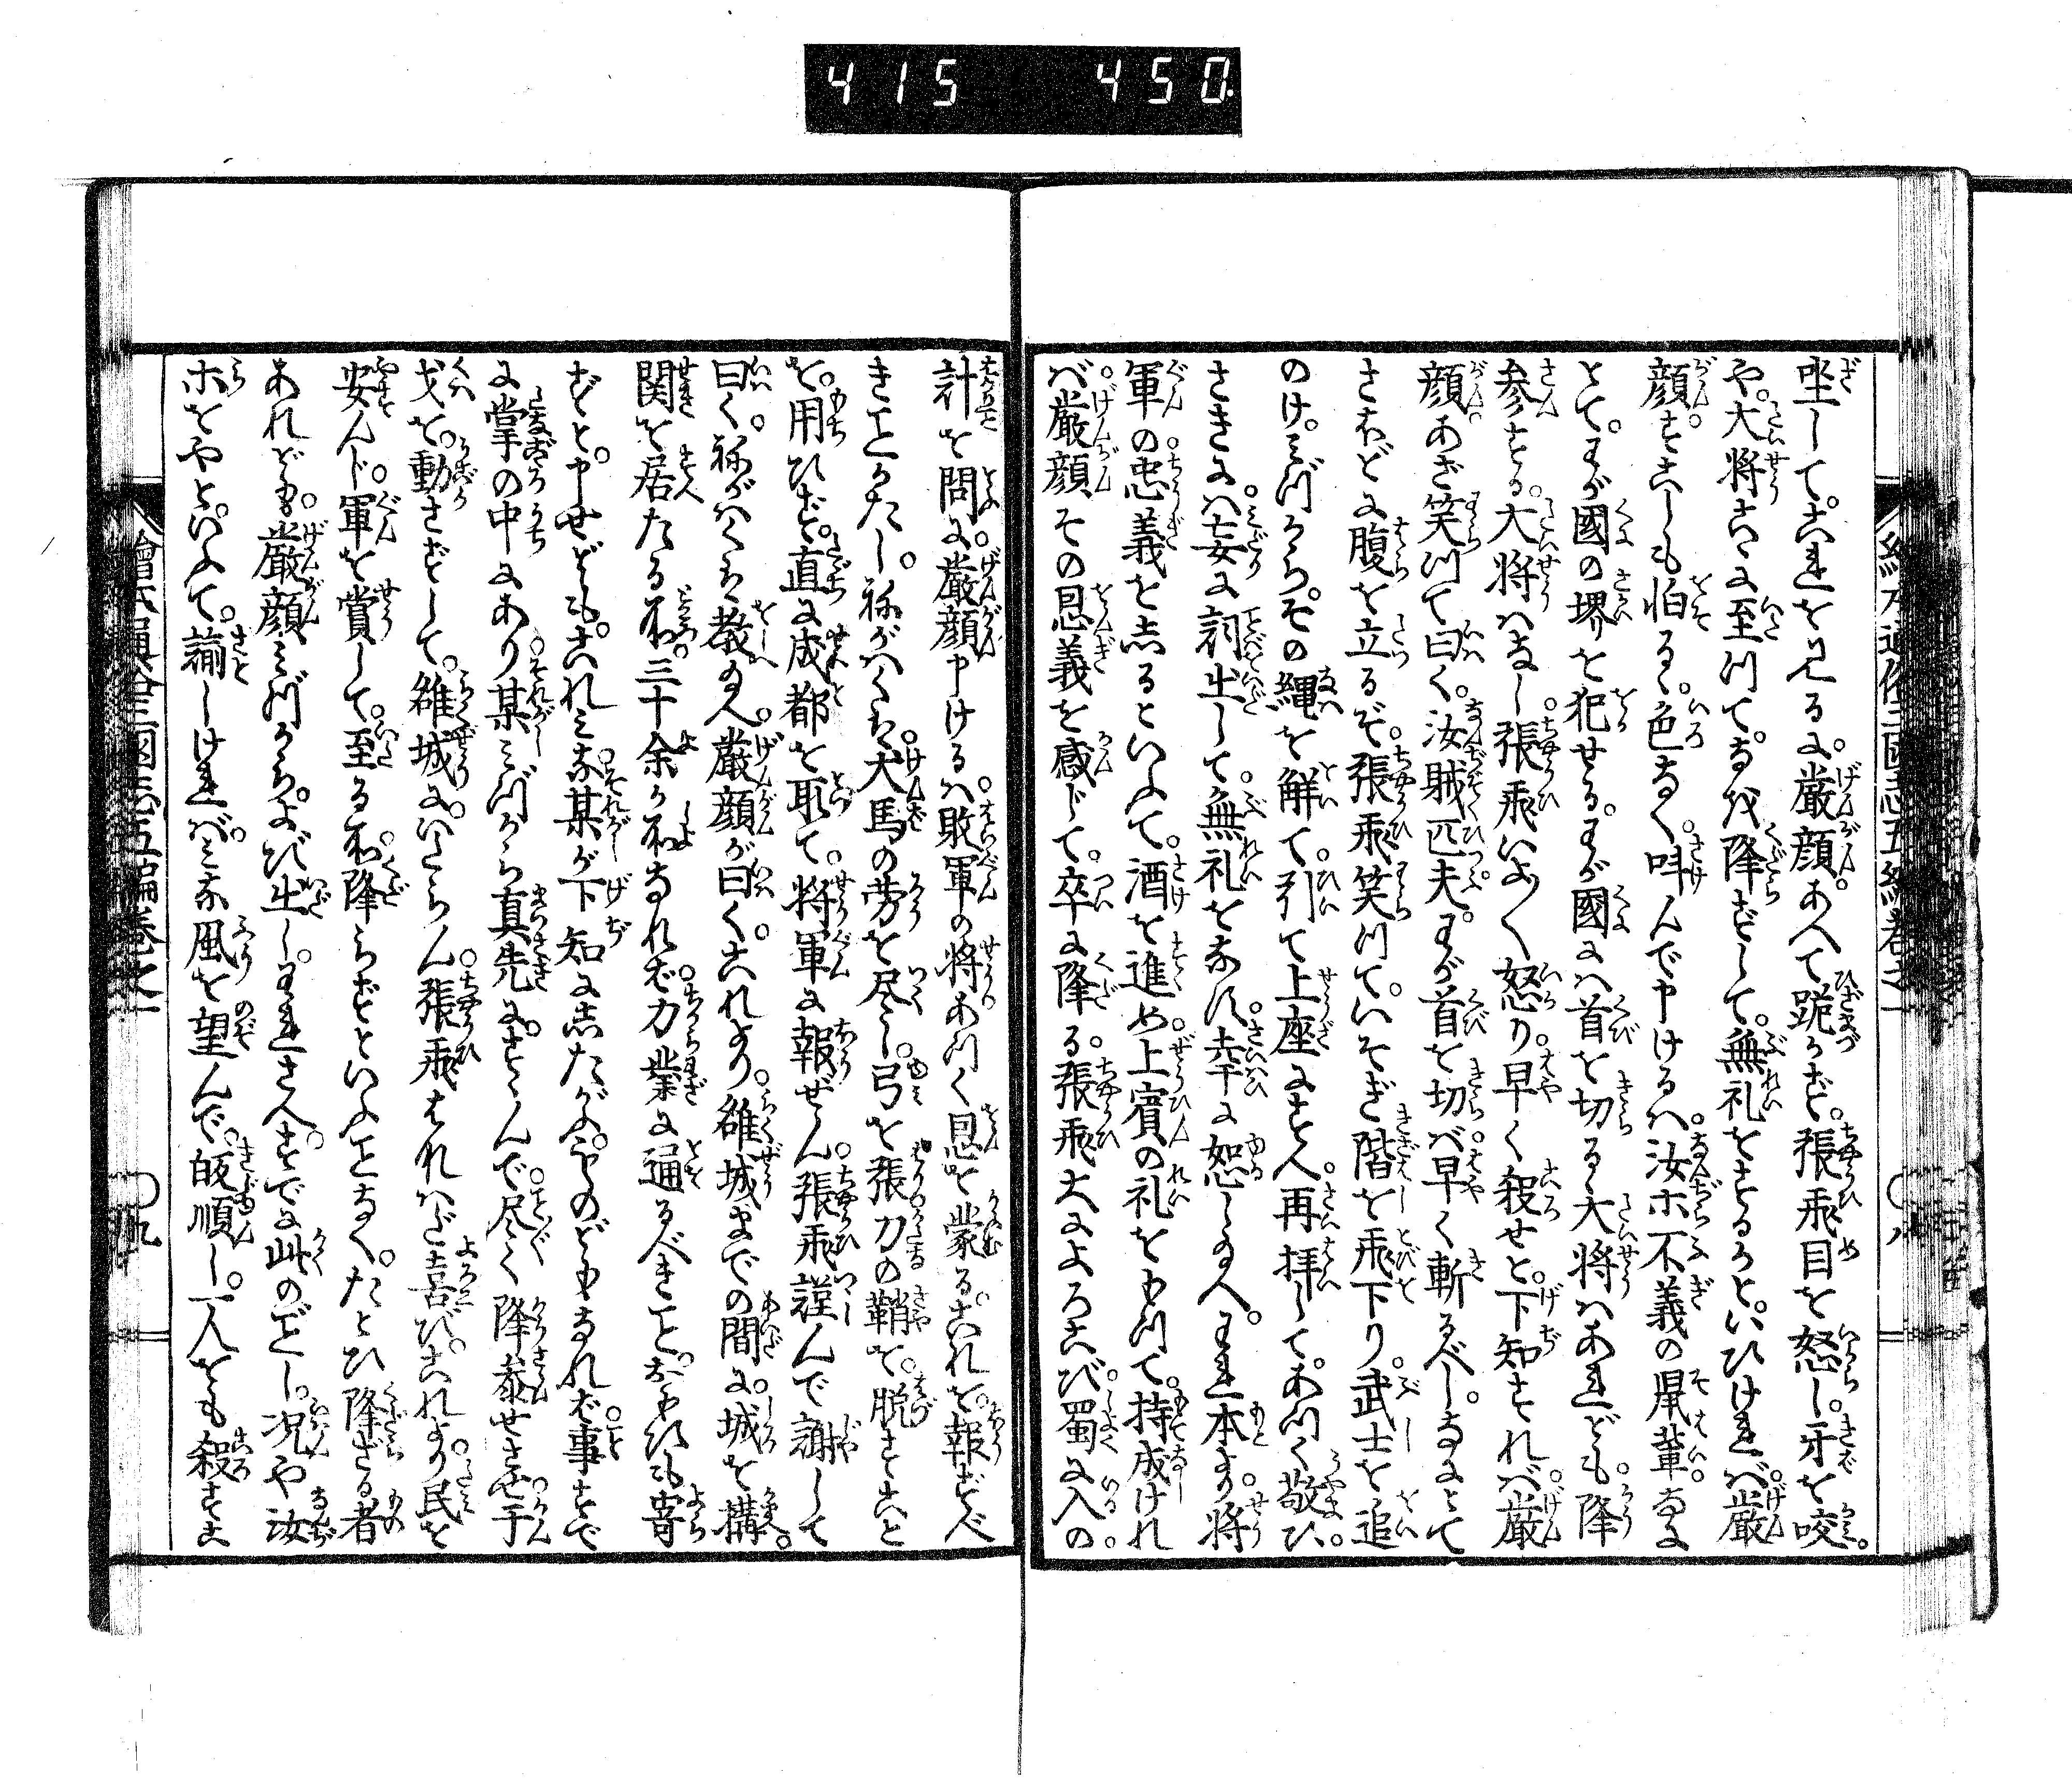 415 450
坐して。これを見るに。厳顔。あへて跪かず。張飛目を怒し。牙を咬。
や。大将こゝに至つて。なぜ降ずして。無礼をするかと。いひけれバ。厳
顔。すこしも怕るゝ色なく。呌んで申けるハ。汝ホ不義の鼡輩。なに
とて。わが國の堺を犯せる。わが國にハ首を切るゝ大将ハあれども。降
参する。大将ハなし。張飛いよ〱怒り。早く殺せと。下知すれバ。厳
顔。あざ笑つて曰く。汝賊匹夫。わが首を切バ早く斬るべし。なにとて
さほどに腹を立るぞ。張飛笑つて。いそぎ階を飛下り。武士を追
のけ。みづから。その縄を解て。引て上座にすへ。再拝して。あつく敬ひ。
さきにハ妄に詞出して。無礼をなす。幸に恕し給へ。われ本より。将
軍の忠義をしるといふて。酒を進め。上賓の礼をもつて。持成けれ
バ。厳顔その恩義を感じて。卒に降る。張飛大によろこび。蜀に入の
計を問に。厳顔申けるハ。敗軍の将あつく恩を蒙る。これを。報ずべ
きことかたし。祢がハくハ。犬馬の労を尽し。弓を張刀の鞘を。脱すこと
を。用ひず。直に成都を取て。将軍に報ぜん。張飛謹んで謝して
曰く。祢がハくハ教給へ。厳顔が曰く。これより。雒城までの間に。城を構。
関を居たる所。三十余ヶ所なれバ。力業に通るべきこと。おもひも寄
ずと。申せども。これみな。某が下知にしたがふ。ものどもなれバ。事すで
に掌の中にあり。某みづから真先にすゝんで。尽く降参せさせ。干
戈を。動さずして。雒城に。いたらん。張飛きハめて喜び。これより民を
安んじ。軍を賞して。至る所。降らずといふことなく。たとひ降ざる者
あれども。厳顔みづから。よび出し。われさへ。すでに此のごとし。况や汝
ホをやと。いふて。諭しけれバ。みな風を望んで。皈順し。一人をも殺すこ